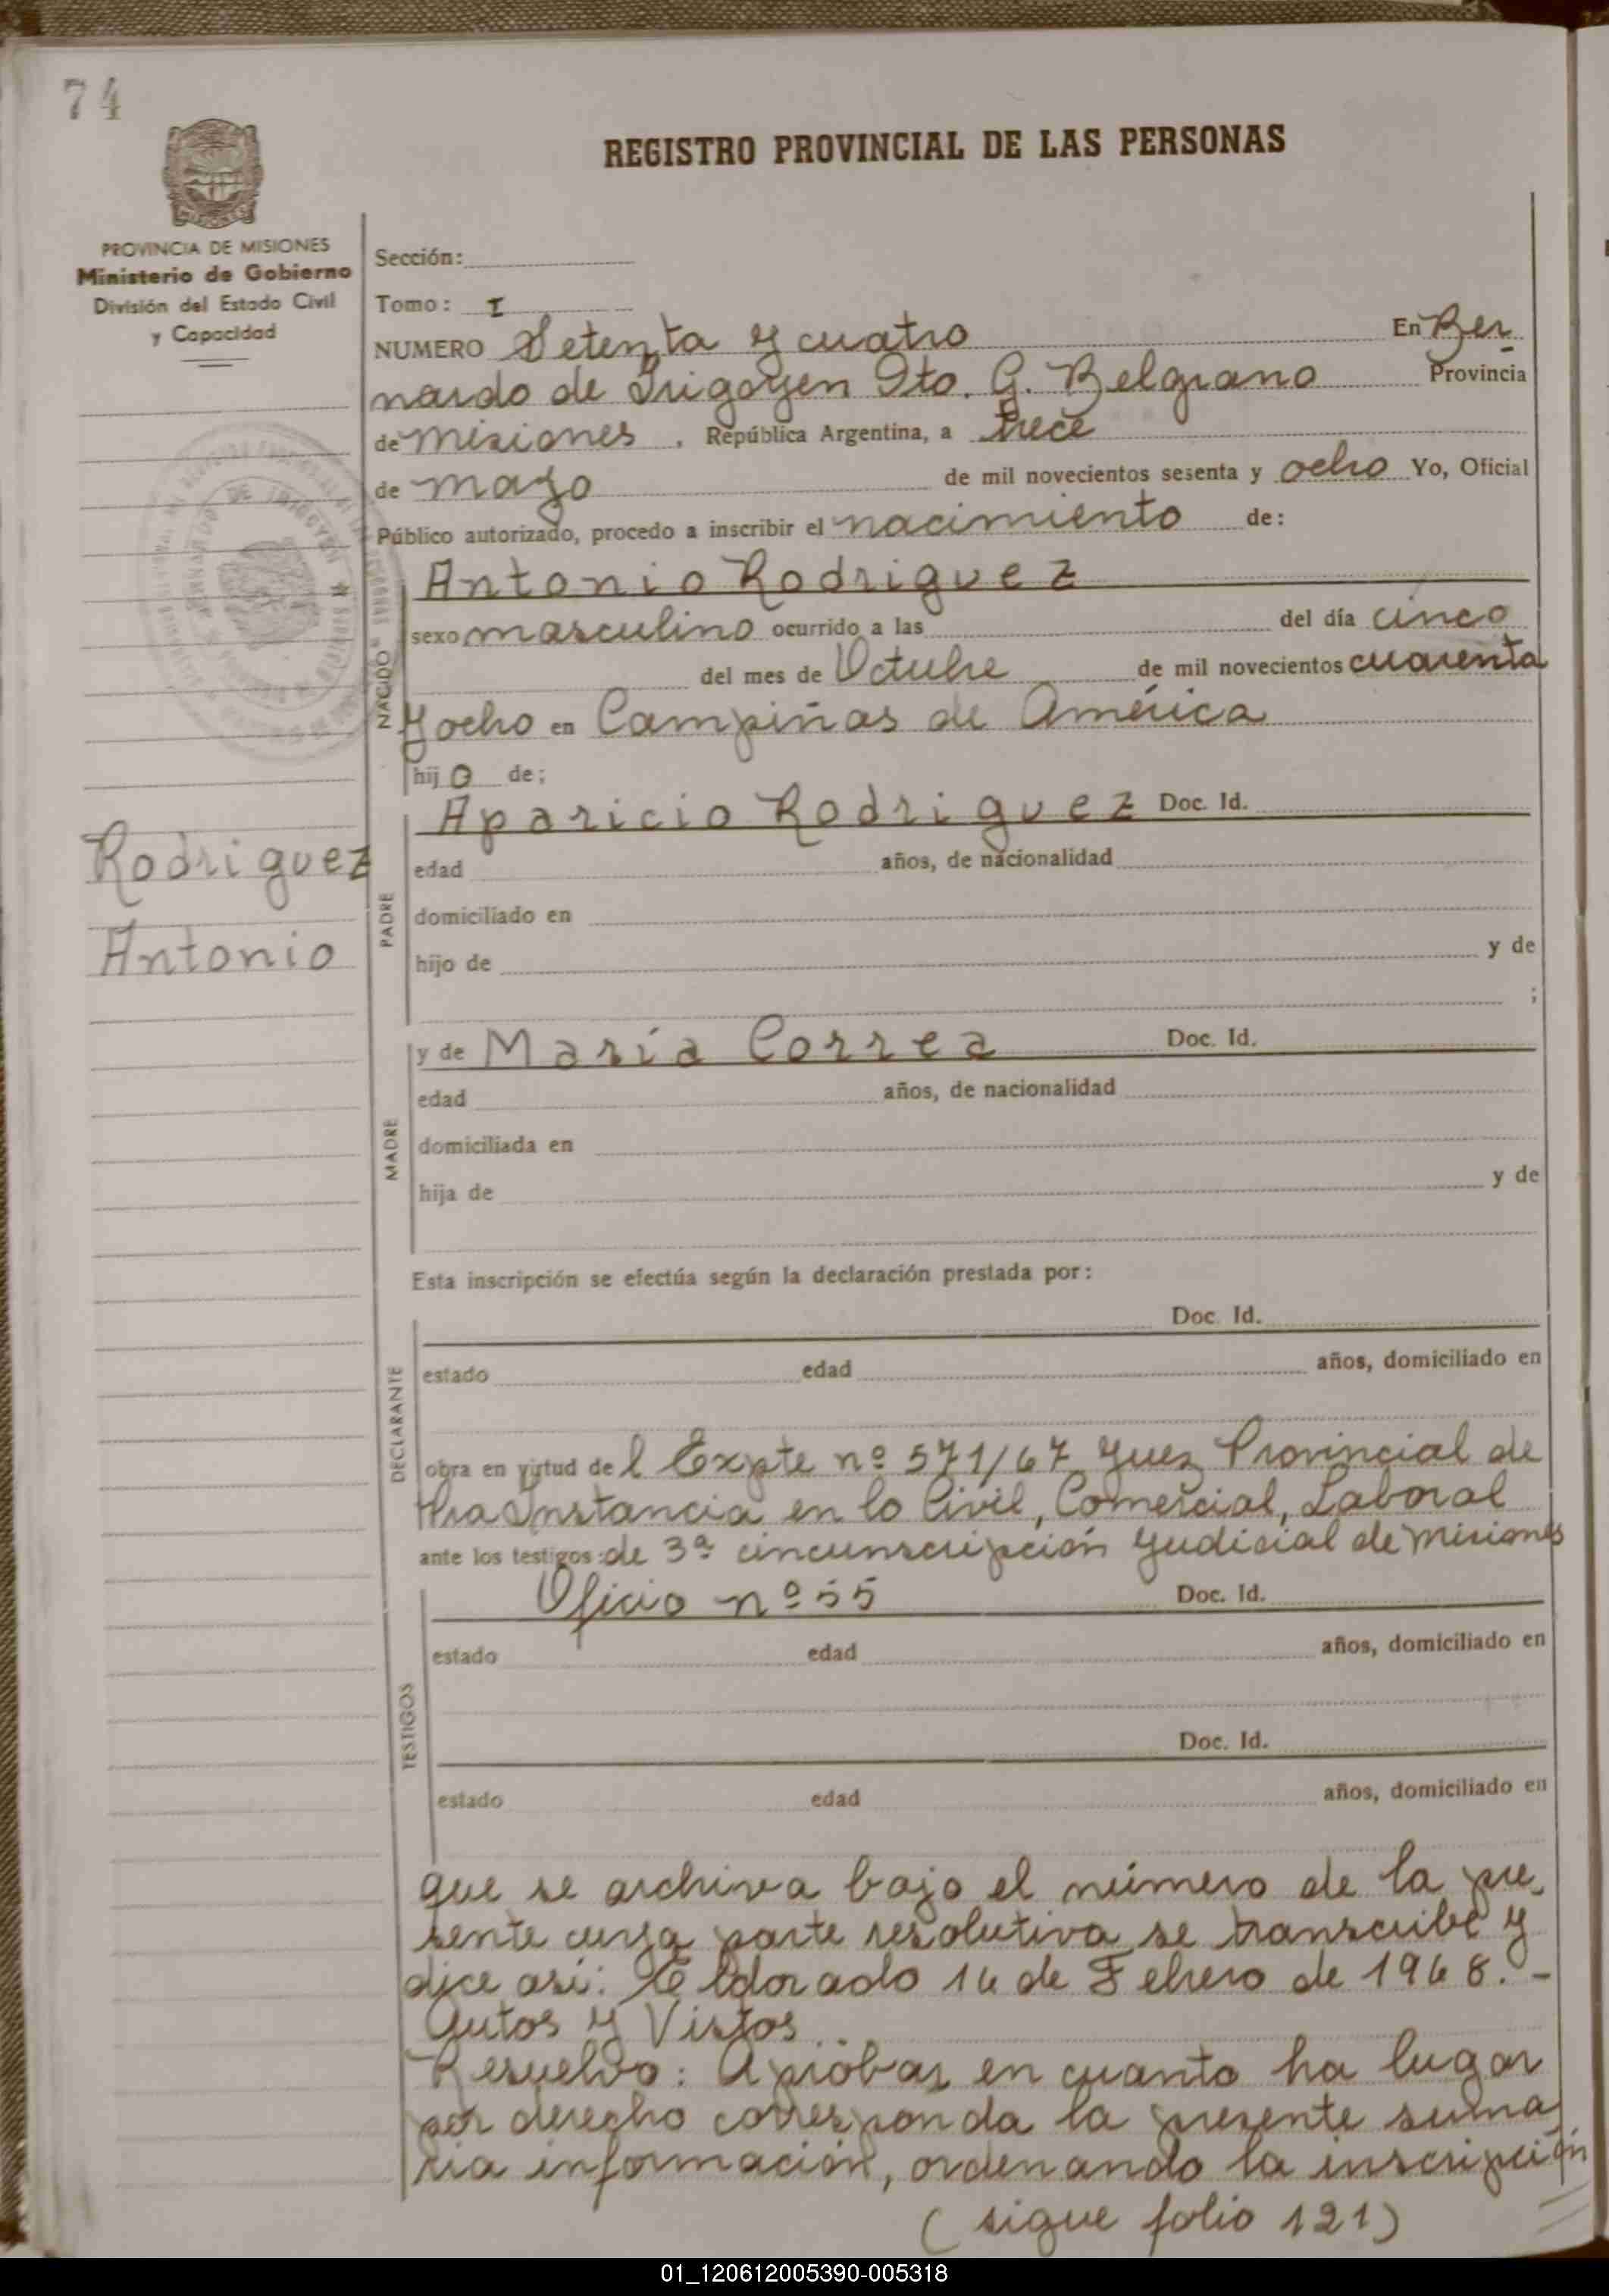 74
REGISTRO PROVINCIAL DE LAS PERSONAS
PROVINCIA DE MISIONES
Ministerio de Gobierno
División del Estado Civil
y Capacidad
Sección:
Tomo: I
NUMERO Setenta y cuatro En Ber-
nardo de Irigoyen Dto. G. Belgrano Provincia
de misiones, República Argentina, a trece
de mayo de mil novecientos sesenta y ocho Yo, Oficial
Público autorizado, procedo a inscribir el nacimiento de:
NACIDO
Antonio Rodriguez
sexo masculino ocurrido a las del día cinco
del mes de Octubre de mil novecientos cuarenta
y ocho en Campiñas de América
hijo de;
Rodriguez
Antonio
PADRE
Aparicio Rodriguez Doc. Id.
edad años, de nacionalidad
domiciliado en
hijo de y de
;
MADRE
y de María Correa Doc. Id.
edad años, de nacionalidad
domiciliada en
hija de y de
Esta inscripción se efectúa según la declaración prestada por:
DECLARANTE
Doc. Id.
estado edad años, domiciliado en
obra en virtud del Expte nº 571/67 Juez Provincial de
1ra Instancia en lo Civil, Comercial, Laboral
ante los testigos: de 3ª circunscripción Judicial de misiones
TESTIGOS
Oficio nº 55 Doc. Id.
estado edad años, domiciliado en
Doc. Id.
estado edad años, domiciliado en
que se archiva bajo el número de la pre-
sente cuya parte resolutiva se transcribe y
dice así: Eldorado 14 de Febrero de 1968.-
Autos y Vistos..
Resuelvo: Aprobar en cuanto ha lugar
por derecho corresponda la presente suma
ria información, ordenando la inscripción
(sigue folio 121)
01_120612005390-005318